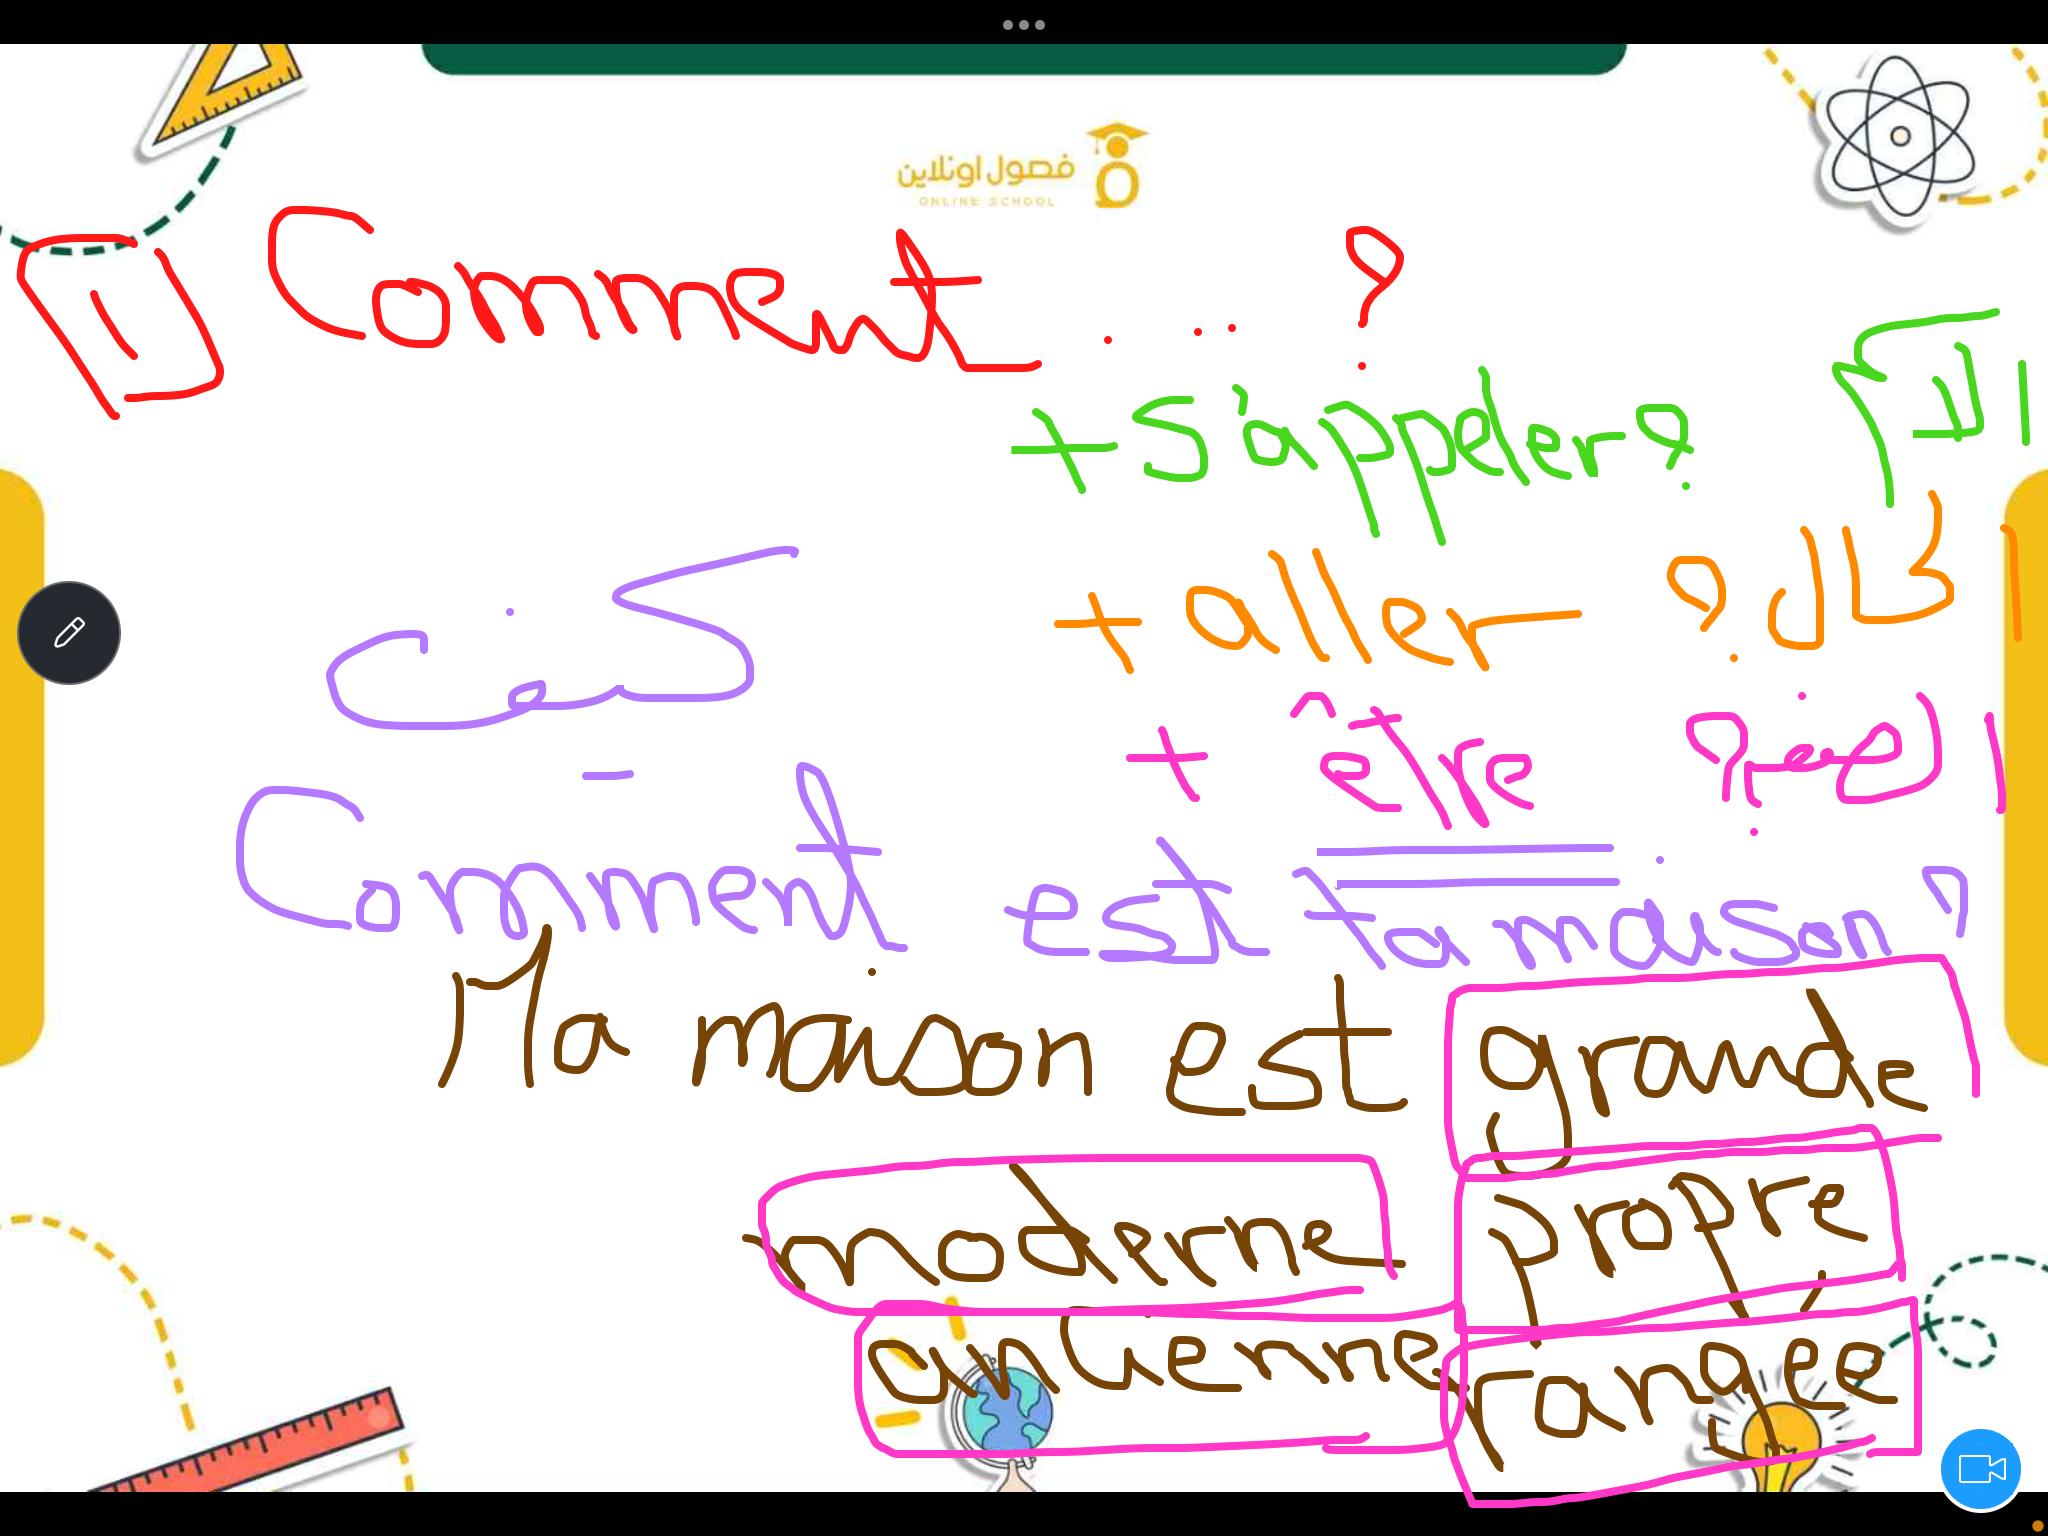 فصول اونلاين
ONLINE SCHOOL
1 Comment ... ?
+ s'appeler ?
كيف + aller ? الحال
+ être ? الصفة
Comment est ta maison ?
Ma maison est grande
moderne propre,
ancienne, rangée